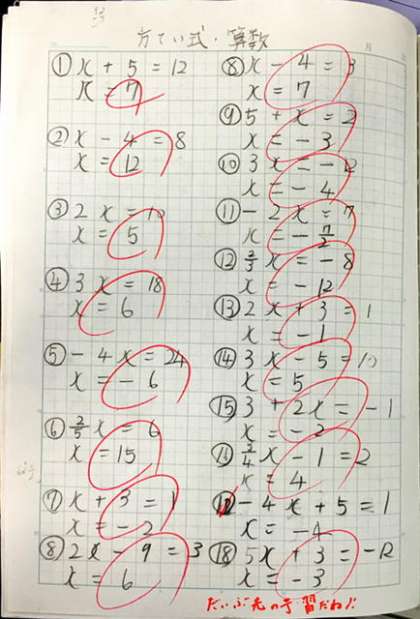 方てい式・算数
① x + 5 = 12
x = 7
② x - 4 = 8
x = 12
③ 2x = 10
x = 5
④ 3x = 18
x = 6
⑤ -4x = 24
x = -6
⑥ 2/5 x = 6
x = 15
⑦ x + 3 = 1
x = -2
⑧ 2x - 9 = 3
x = 6
⑧ x - 4 = 3
x = 7
⑨ 5 + x = 2
x = -3
⑩ 3x = -12
x = -4
⑪ -2x = 7
x = -7/2
⑫ 2/3 x = -8
x = -12
⑬ 2x + 3 = 1
x = -1
⑭ 3x - 5 = 10
x = 5
⑮ 3 + 2x = -1
x = -2
3/4 x - 1 = 2
x = 4
-4x + 5 = 1
x = -4
⑱ 5x + 3 = -12
x = -3
だいぶ先の予習だね!!